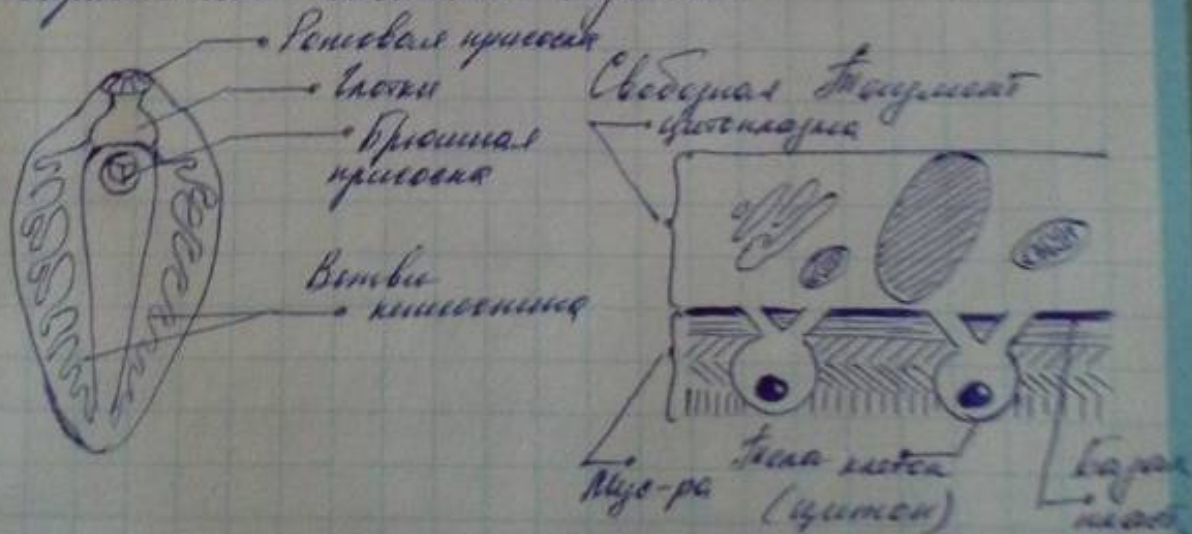 Ротовая присоска
Глотка
Брюшная
присоска
Ветви
кишечника
Свободная Тегумент
цитоплазма
Мус-ра
Тела клеток
(цитон)